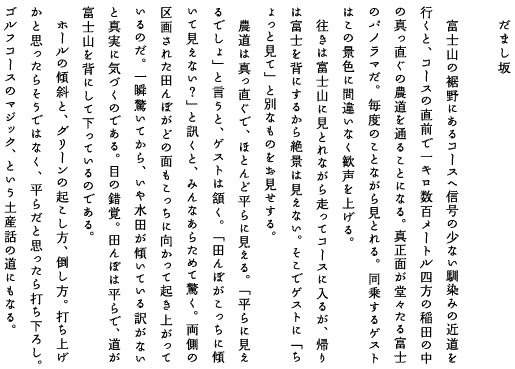 だまし坂
富士山の裾野にあるコースへ信号の少ない馴染みの近道を
行くと、コースの直前で一キロ数百メートル四方の稲田の中
の真っ直ぐの農道を通ることになる。真正面が堂々たる富士
のパノラマだ。毎度のことながら見とれる。同乗するゲスト
はこの景色に間違いなく歓声を上げる。
往きは富士山に見とれながら走ってコースに入るが、帰り
は富士を背にするから絶景は見えない。そこでゲストに「ち
ょっと見て」と別なものをお見せする。
農道は真っ直ぐで、ほとんど平らに見える。「平らに見え
るでしょ」と言うと、ゲストは頷く。「田んぼがこっちに傾
いて見えない？」と訊くと、みんなあらためて驚く。両側の
区画された田んぼがどの面もこっちに向かって起き上がって
いるのだ。一瞬驚いてから、いや水田が傾いている訳がない
と真実に気づくのである。目の錯覚。田んぼは平らで、道が
富士山を背にして下っているのである。
ホールの傾斜と、グリーンの起こし方、倒し方。打ち上げ
かと思ったらそうではなく、平らだと思ったら打ち下ろし。
ゴルフコースのマジック、という土産話の道にもなる。